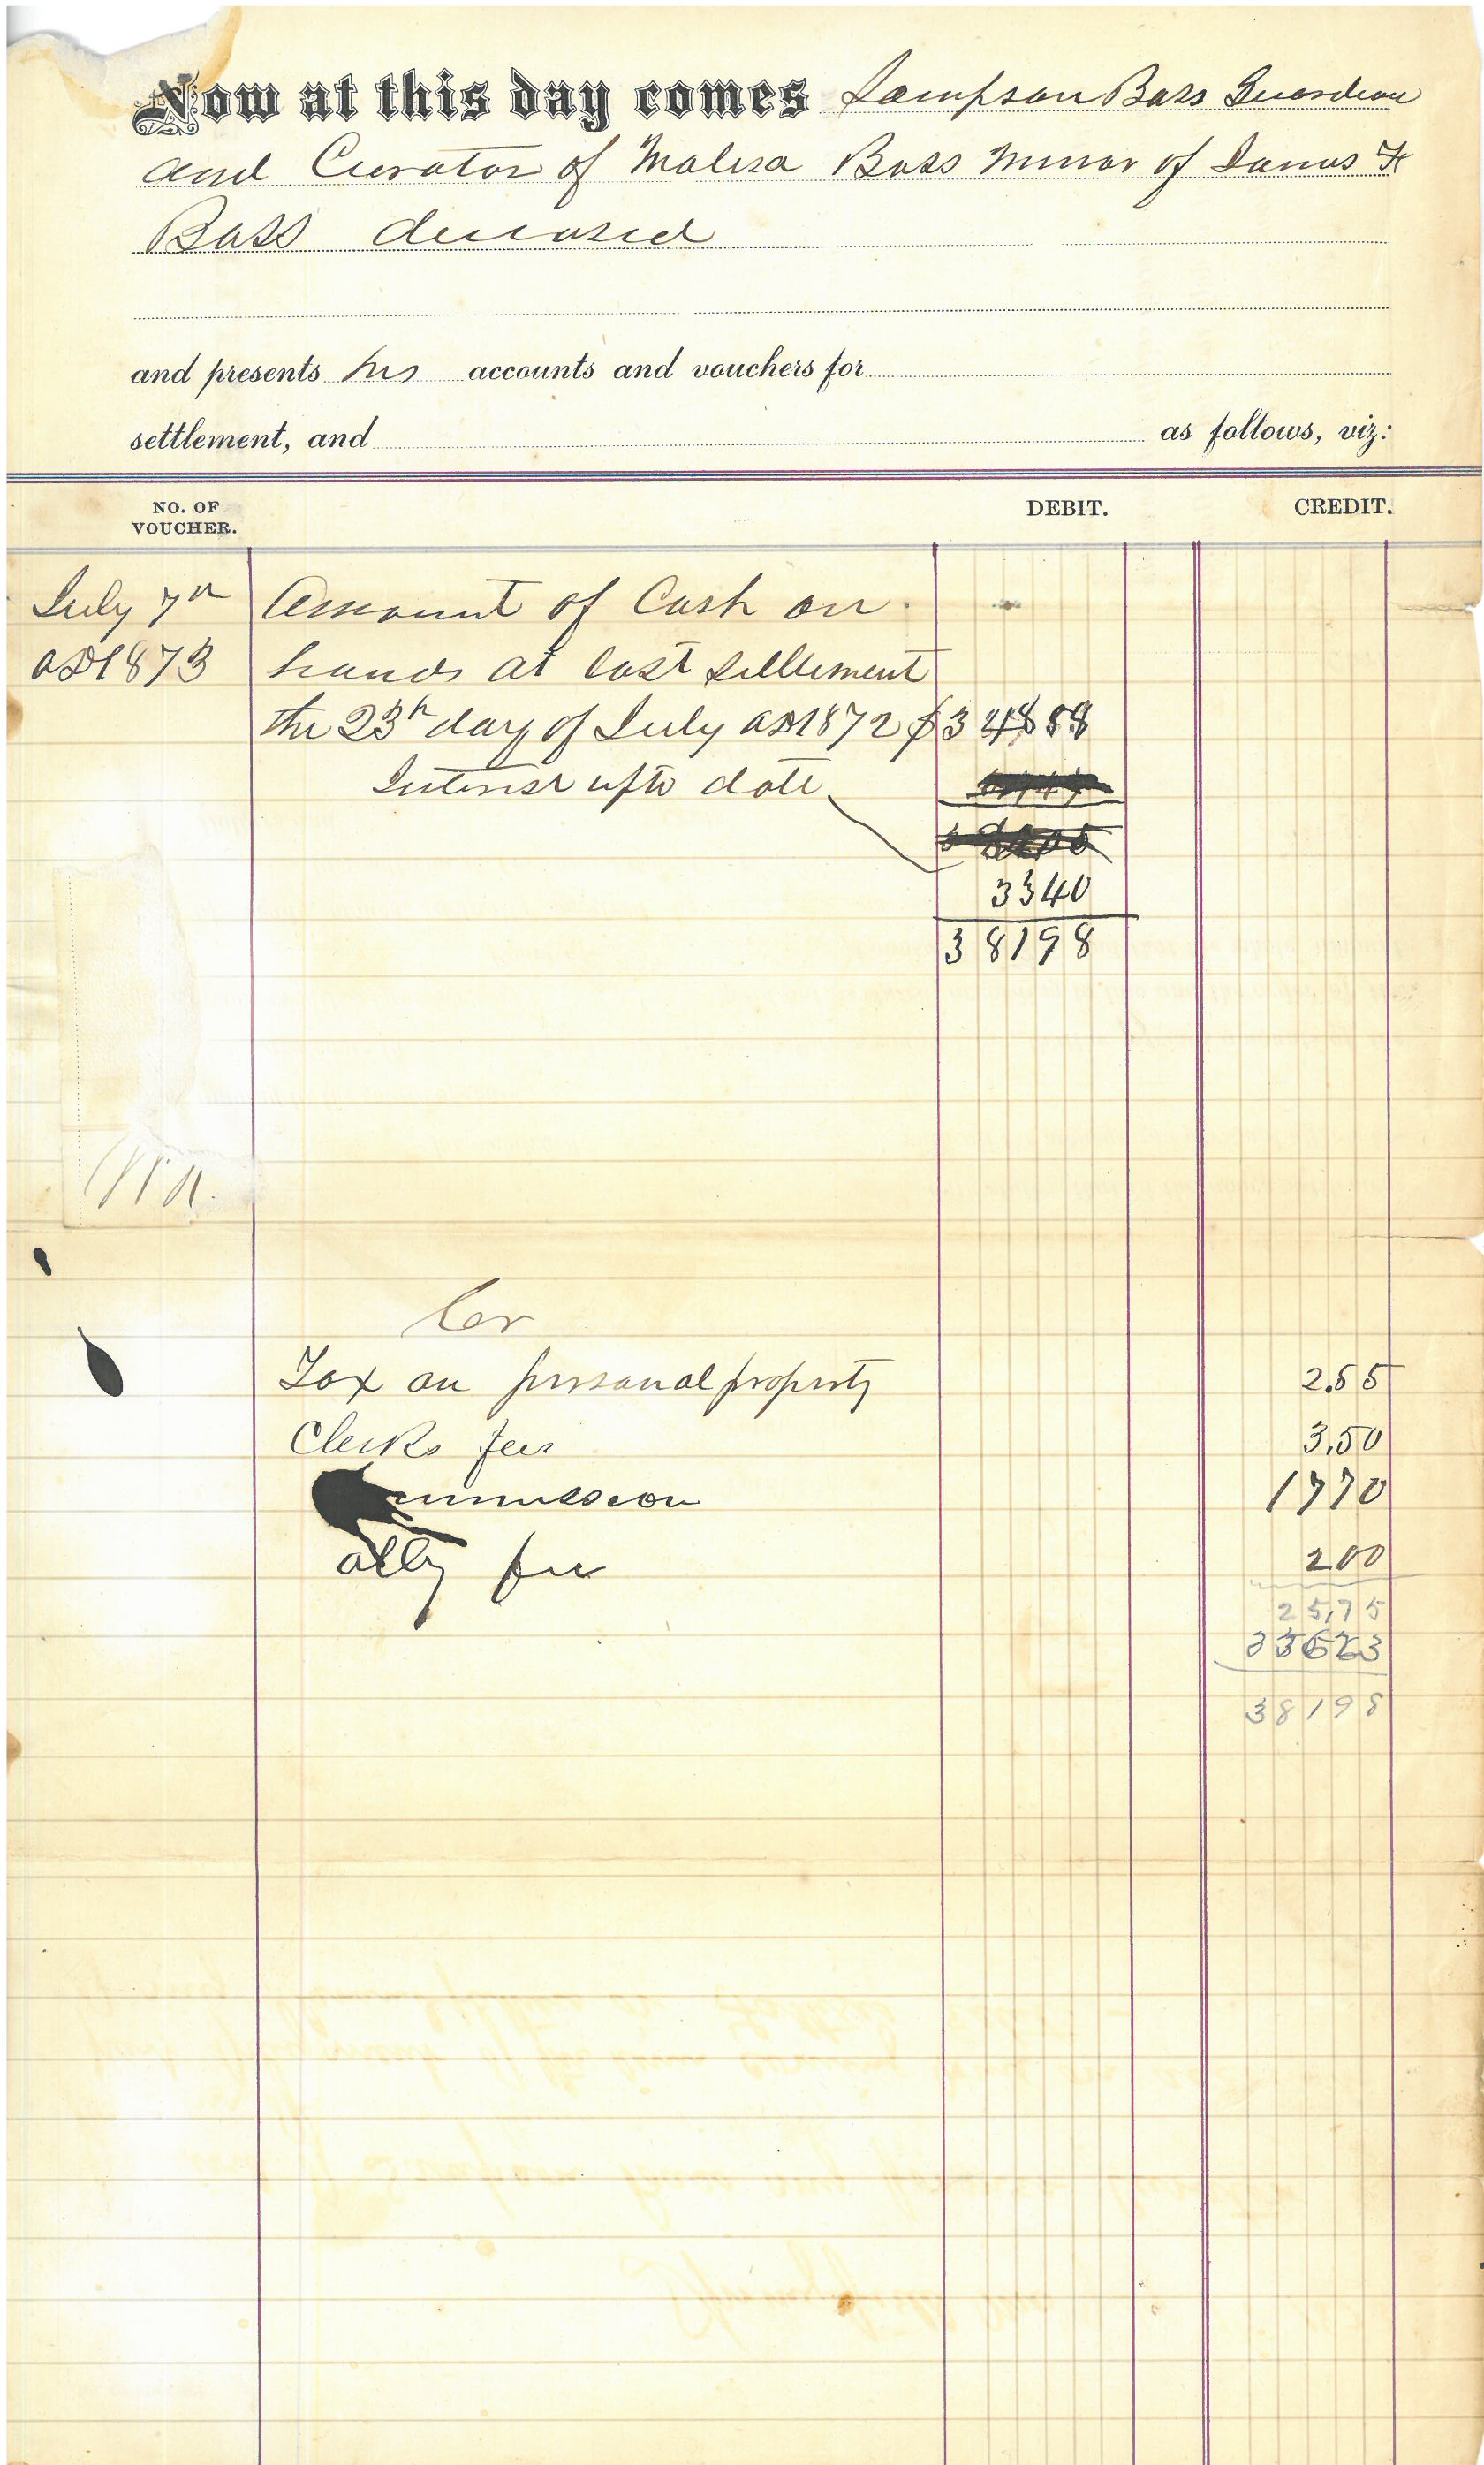 Now at this day comes Sampson Bass Guardian
and Curator of Malisa Bass Minor of James H
Bass deceased
and presents his accounts and vouchers for
settlement, and as follows, viz:
NO. OF VOUCHER. DEBIT. CREDIT.
July 7th Amount of Cash on
AD 1873 hands at last settlement
the 23th day of July AD 1872 $348 58
Interest upto date
33 40
381 98
Cr
Tax on personal property 2.55
Clerks fees 3.50
17 70
atty fee 2 00
25,75
381 98